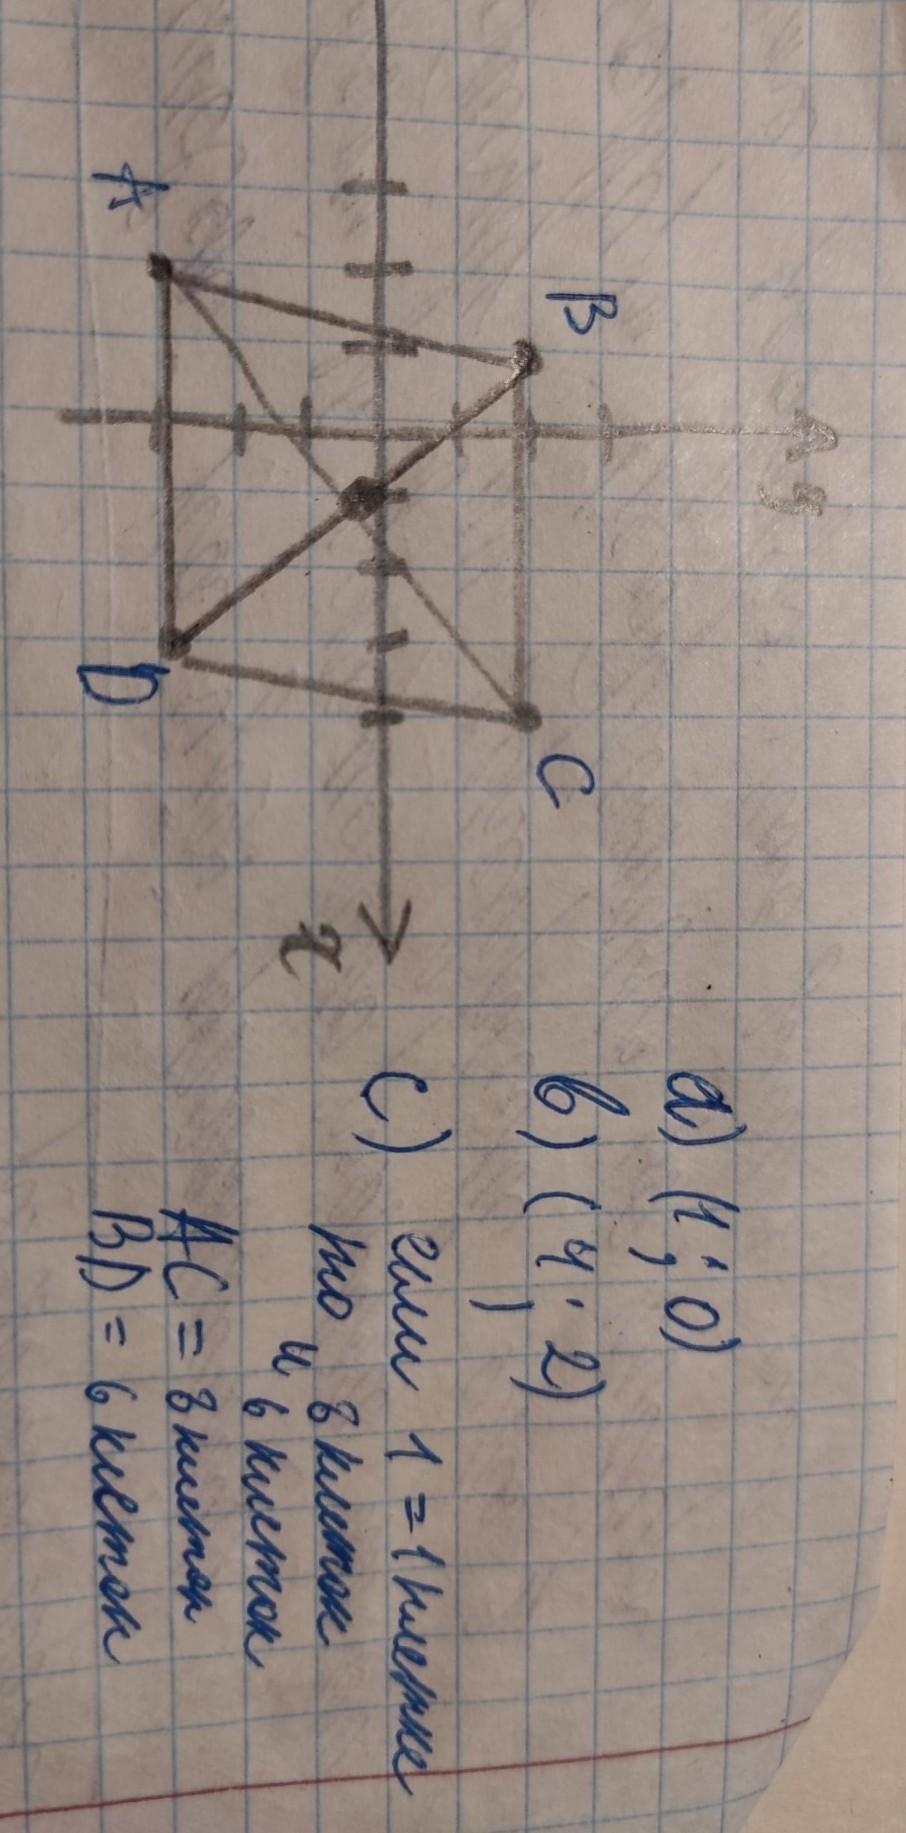 y
B
C
x
A
D
a) (1; 0)
b) (4; 2)
c) если 1 = 1 клетке
то 8 клеток
и 6 клеток
AC = 8 клеток
BD = 6 клеток